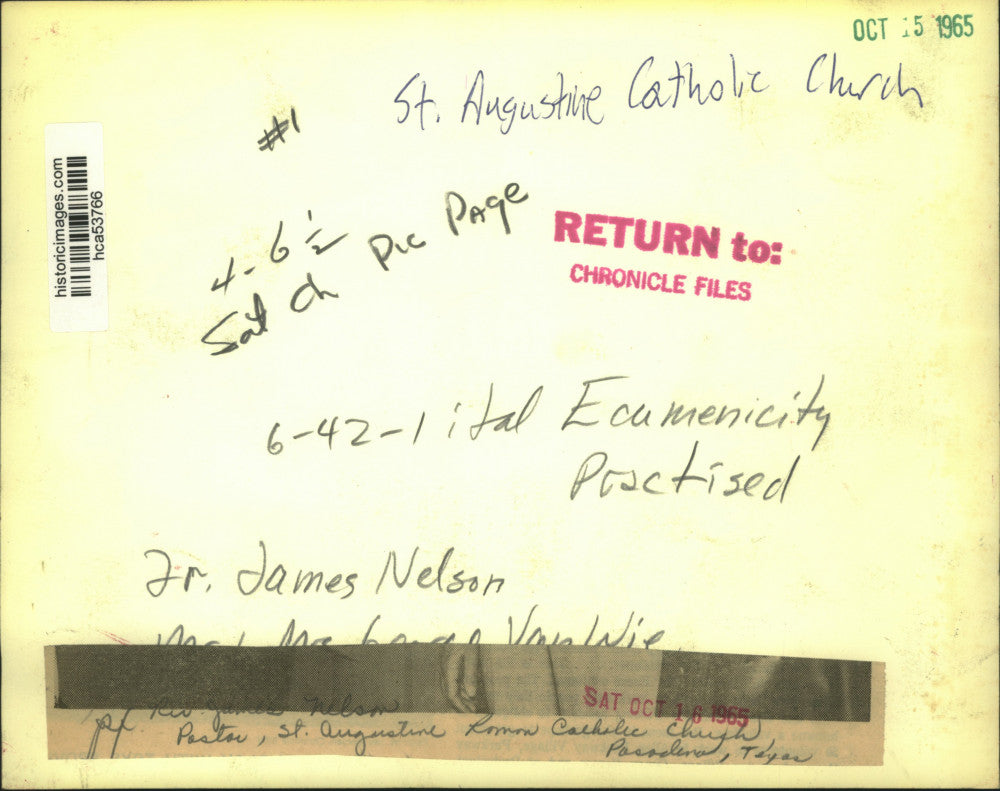 OCT 15 1965
St. Augustine Catholic Church
#1
historicimages.com
hca53766
4-6½
Sat Ch Pic Page
RETURN to:
CHRONICLE FILES
6-42-1 ital Ecumenicity
Practised
Fr. James Nelson
VanWie
SAT OCT 16 1965
Rev. James Nelson
Pastor, St. Augustine Roman Catholic Church
Pasadena, Texas